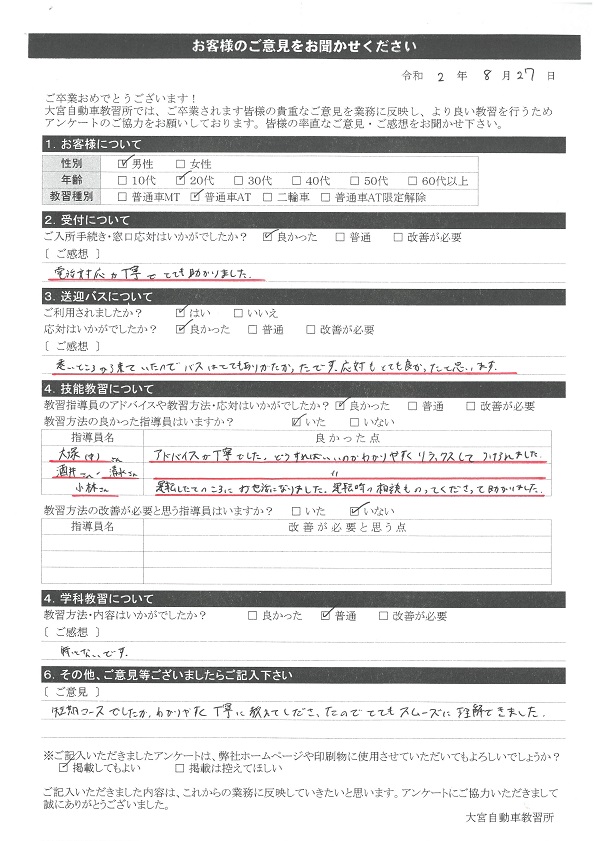 お客様のご意見をお聞かせください
令和 2 年 8 月 27 日
ご卒業おめでとうございます！
大宮自動車教習所では、ご卒業されます皆様の貴重なご意見を業務に反映し、より良い教習を行うため
アンケートのご協力をお願いしております。皆様の率直なご意見・ご感想をお聞かせ下さい。
1. お客様について
性別 ☑男性 □女性
年齢 □10代 ☑20代 □30代 □40代 □50代 □60代以上
教習種別 □普通車MT ☑普通車AT □二輪車 □普通車AT限定解除
2. 受付について
ご入所手続き・窓口応対はいかがでしたか？ ☑良かった □普通 □改善が必要
［ ご感想 ］
電話対応が丁寧でとても助かりました。
3. 送迎バスについて
ご利用されましたか？ ☑はい □いいえ
応対はいかがでしたか？ ☑良かった □普通 □改善が必要
［ ご感想 ］
バスはとてもありがたかったです。応対もとても良かったと思います。
4. 技能教習について
教習指導員のアドバイスや教習方法・応対はいかがでしたか？ ☑良かった □普通 □改善が必要
教習方法の良かった指導員はいますか？ ☑いた □いない
指導員名 良かった点
大塚 さん アドバイスが丁寧でした。どうすればいいのかわかりやすくリラックスして
酒井さん 清水さん 〃
小林さん お世話になりました。運転時の相談ものってくださって助かりました。
教習方法の改善が必要と思う指導員はいますか？ □いた ☑いない
指導員名 改善が必要と思う点
4. 学科教習について
教習方法・内容はいかがでしたか？ □良かった ☑普通 □改善が必要
［ ご感想 ］
特にないです。
6. その他、ご意見等ございましたらご記入下さい
［ ご意見 ］
短期コースでしたが、わかりやすく丁寧に教えてくださったのでとてもスムーズに理解できました。
※ご記入いただきましたアンケートは、弊社ホームページや印刷物に使用させていただいてもよろしいでしょうか？
☑掲載してもよい □掲載は控えてほしい
ご記入いただきました内容は、これからの業務に反映していきたいと思います。アンケートにご協力いただきまして
誠にありがとうございました。
大宮自動車教習所